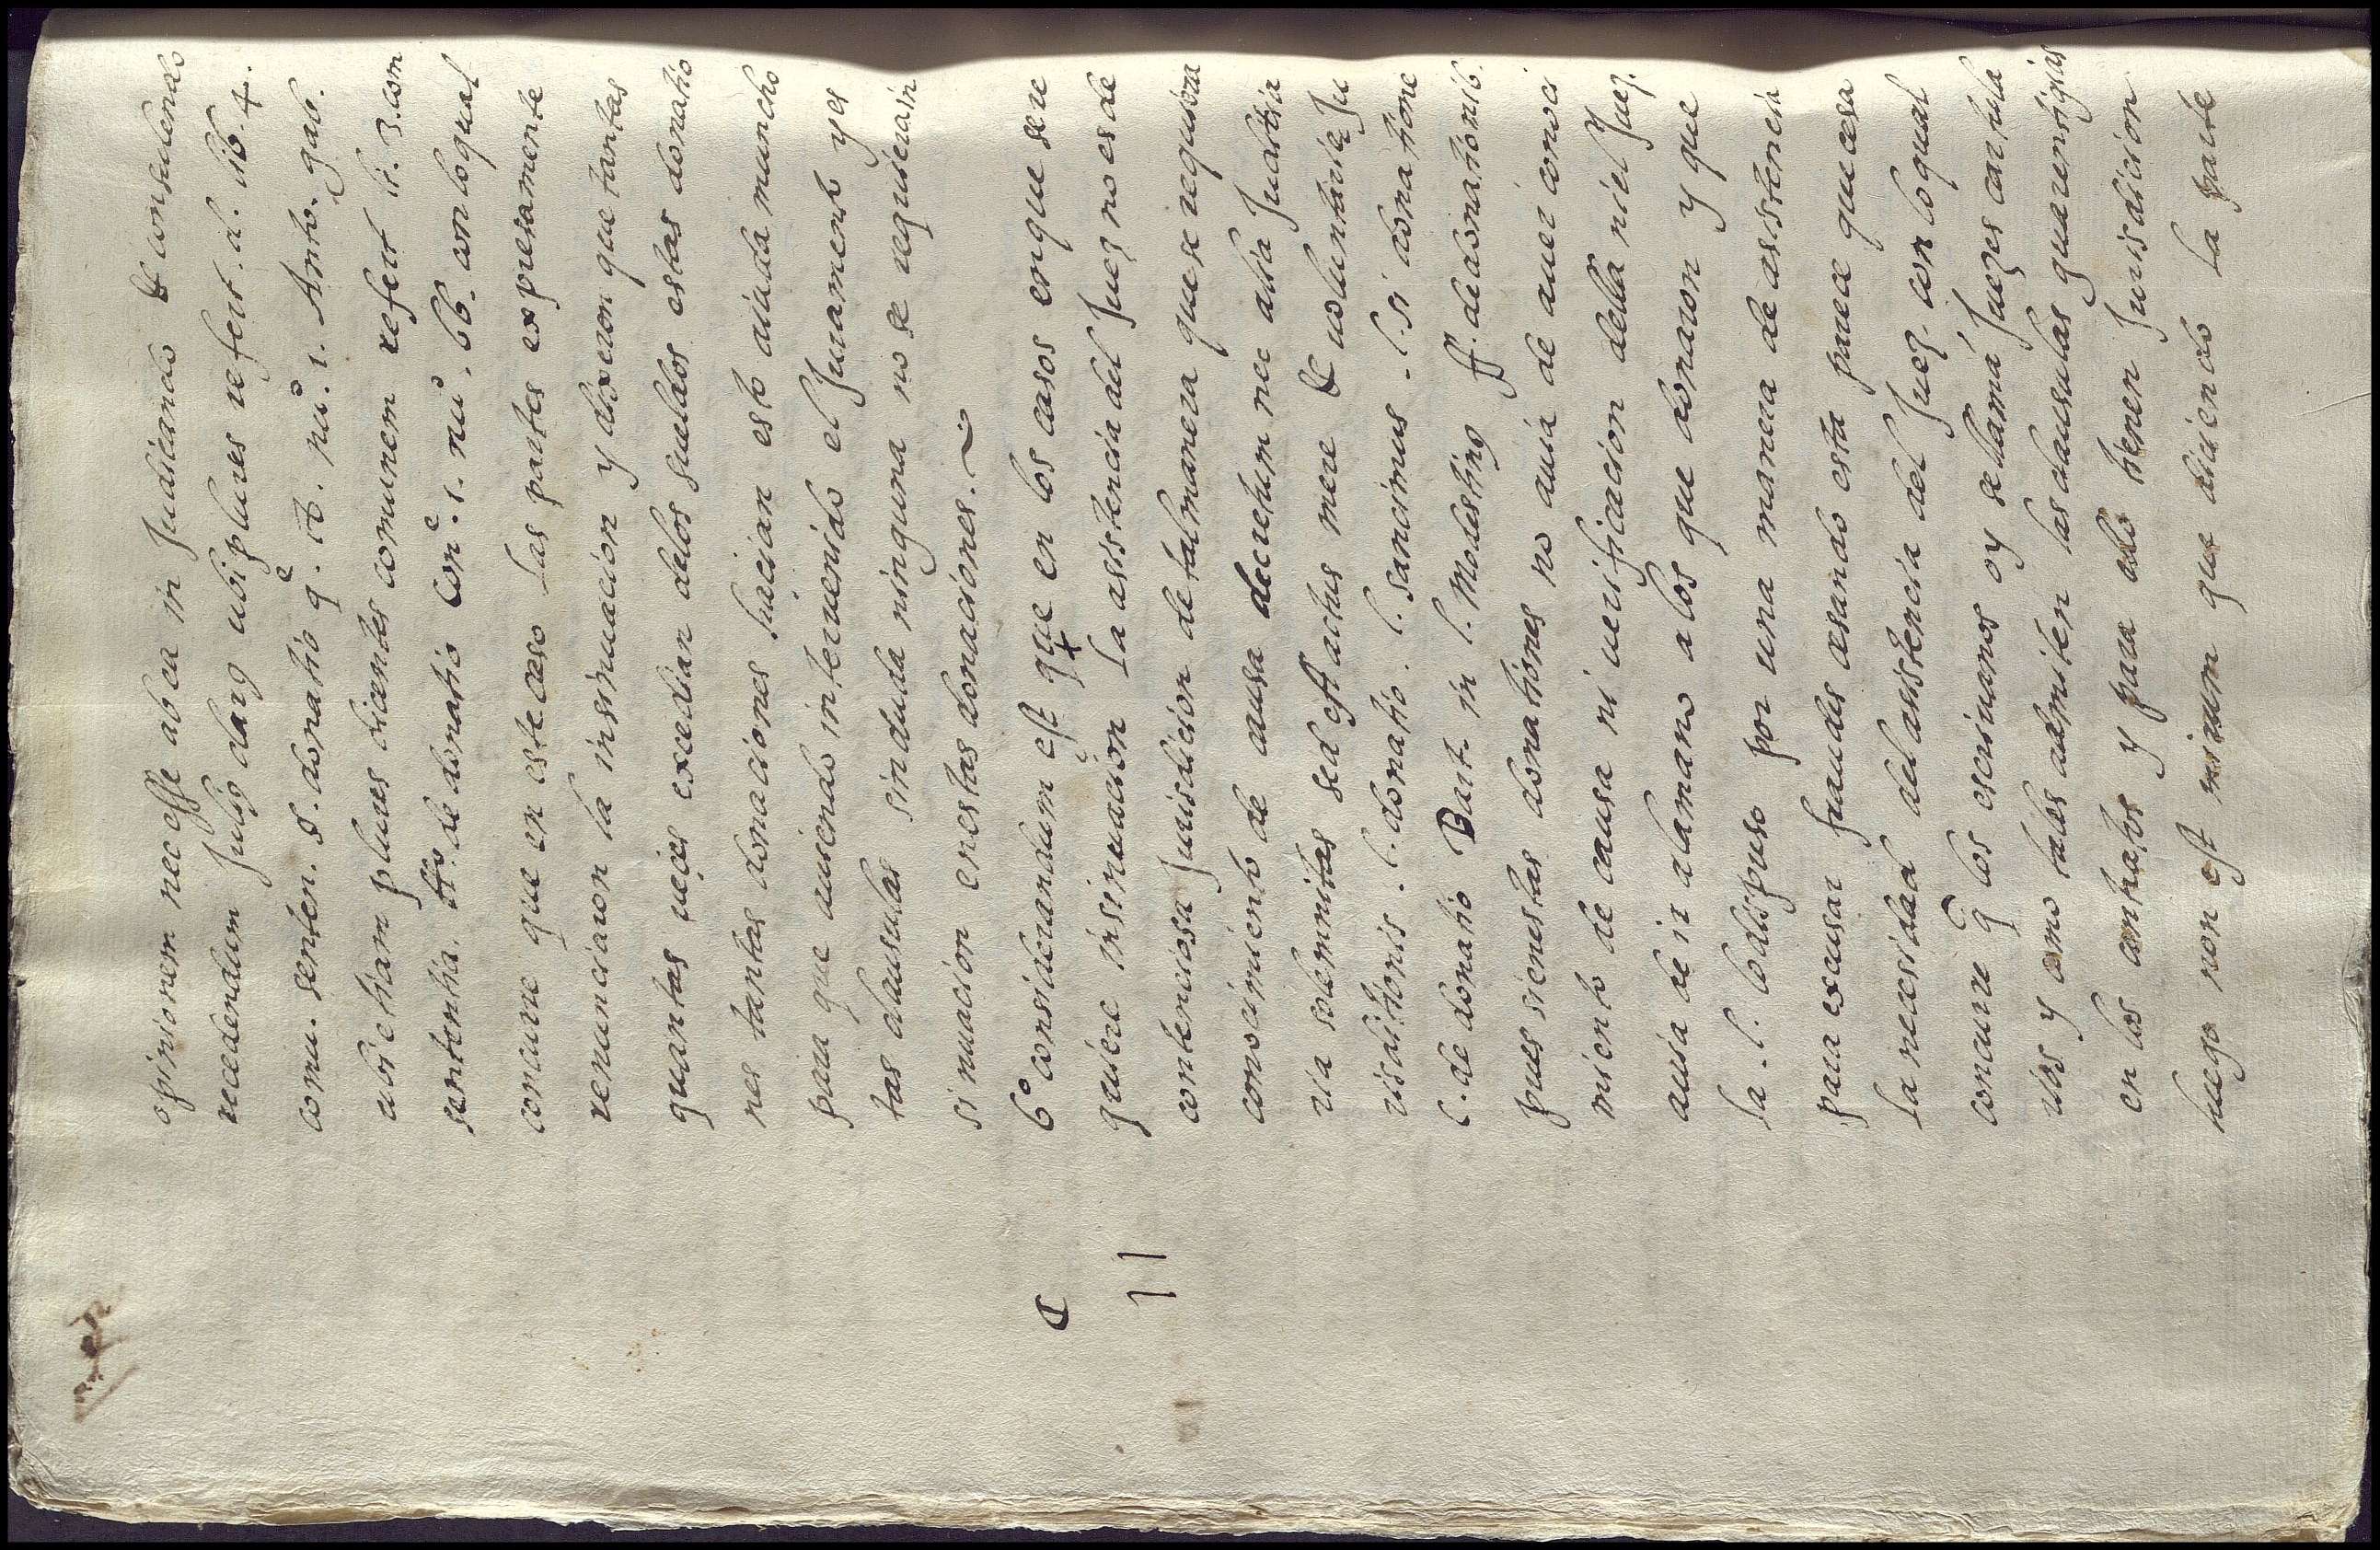 opinionem nec esse ab ea in Judicando & consulendo
recedendum Julig clarg ubi plures refert. d. lib. 4.
comu. senten. §. donatio q. et. nu. 1. Anto. gab.
ubi etiam plures dicentes comunem refert li. 3. com
sententia. tto. de donatio Con. 1. nu. 66. con lo qual
concurre que en este caso las partes expresamente
renunciaron la insinuacion y dixeron que tantas
quantas veçes excedian delos sueldos estas donatio
nes tantas donaciones hacian esto aiuda muncho
para que auiendo interuenido el Juramento y es
tas clausulas sin duda ninguna no se requiera in
sinuacion en estas donaciones.
6o considerandum est que en los casos en que se re
quiere insinuaçion la asistencia del Juez no es de
contenciosa Jurisdicion de tal manera que se requiera
conocimiento de causa decretum nec alia Juditia
ria solemnitas sed est actus mere & voluntarie Ju
risditionis. l. donatio. l. sancimus. l. si donatione
C. de donatio Bart. in l. Modesting ff. de donationib.
pues si en estas donationes no auia de auer conoci
miento de causa ni verificacion della ni el Juez.
auia de ir ala mano a los que donaron y que
la. l. lo dispuso por una manera de asistencia
para excusar fraudes cesando esta parece que cesa
la necesidad del asistencia del Juez. con lo qual
concurre q los escriuanos oy se llamā Juezes cartula
rios y como tales admiten las clausulas quarentigias
en los contratos y para ello tienen Jurisdicion
luego non est mirum que diciendo la parte
C
11